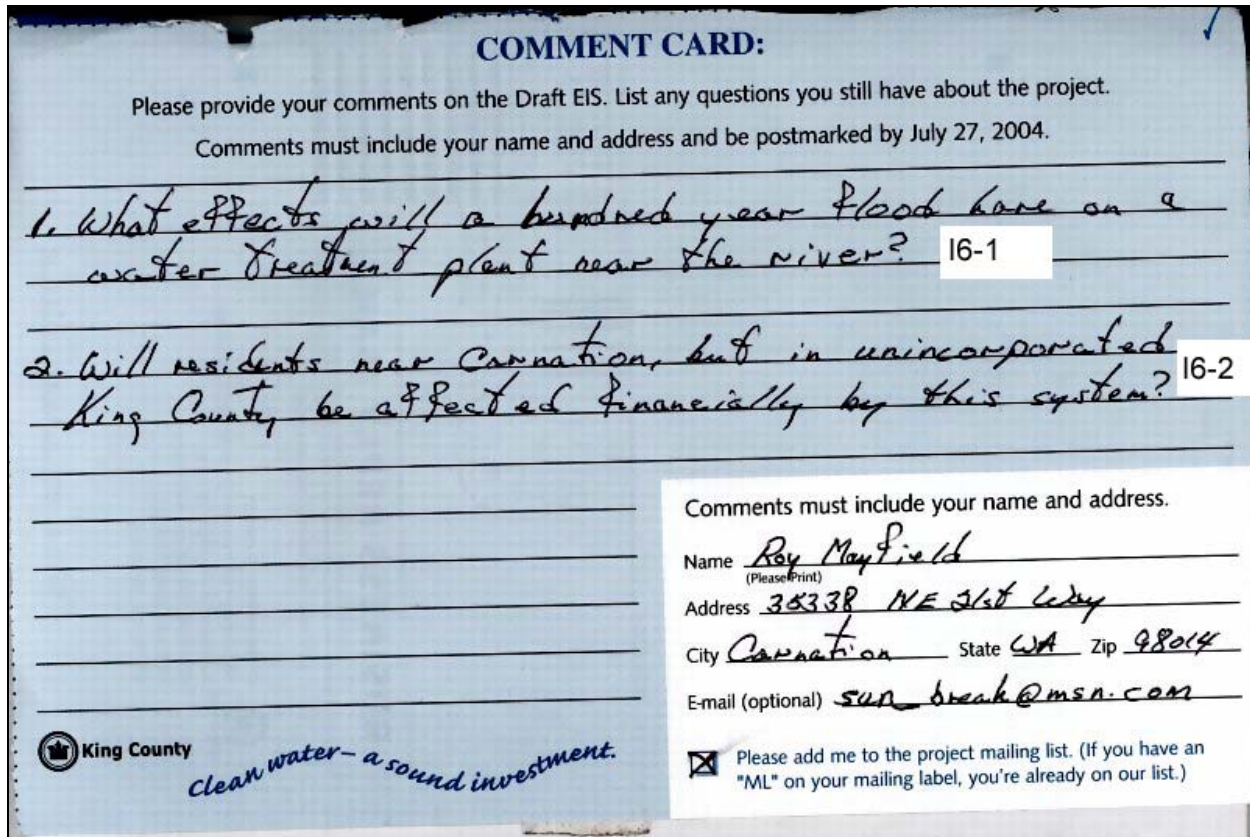 COMMENT CARD:
Please provide your comments on the Draft EIS. List any questions you still have about the project.
Comments must include your name and address and be postmarked by July 27, 2004.
1. What effects will a hundred year flood have on a
water treatment plant near the river? I6-1
2. Will residents near Carnation, but in unincorporated
King County be affected financially by this system? I6-2
Comments must include your name and address.
Name Roy Mayfield
(Please Print)
Address NE 21st Way
City Carnation State WA Zip 98014
E-mail (optional) sun_break@msn.com
King County
Clean water – a sound investment.
Please add me to the project mailing list. (If you have an
"ML" on your mailing label, you're already on our list.)